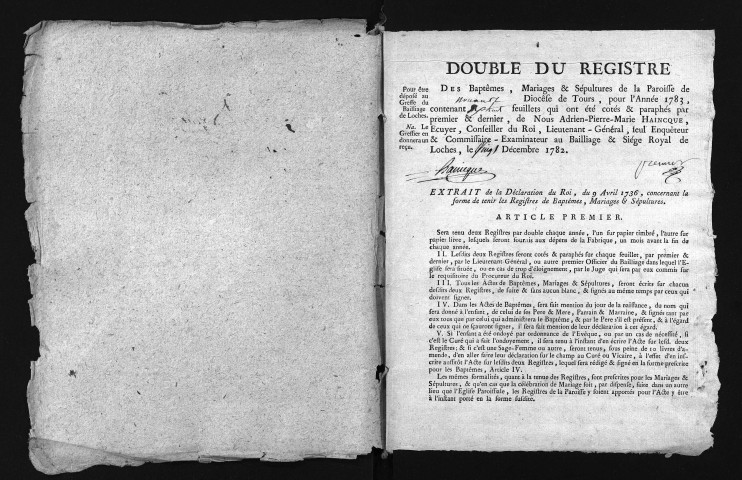 DOUBLE DU REGISTRE
Pour être
déposé au
Greffe du
Bailliage
de Loches.
Na. Le
Greffier en
donnera un
reçu.
DES Baptêmes, Mariages & Sépultures de la Paroisse de
Diocèse de Tours, pour l'Année 1783,
contenant feuillets qui ont été cotés & paraphés par
premier & dernier, de Nous Adrien-Pierre-Marie HAINCQUE,
Ecuyer, Conseiller du Roi, Lieutenant-Général, seul Enquêteur
& Commissaire-Examinateur au Bailliage & Siége Royal de
Loches, le Décembre 1782.
Haincque
premier
EXTRAIT de la Déclaration du Roi, du 9 Avril 1736, concernant la
forme de tenir les Registres de Baptêmes, Mariages & Sépultures.
ARTICLE PREMIER.
Sera tenu deux Registres par double chaque année, l'un sur papier timbré, l'autre sur
papier libre, lesquels seront fournis aux dépens de la Fabrique, un mois avant la fin de
chaque année.
II. Lesdits deux Registres seront cotés & paraphés sur chaque feuillet, par premier &
dernier, par le Lieutenant Général, ou autre premier Officier du Bailliage dans lequel l'E-
glise sera située, ou en cas de trop d'éloignement, par le Juge qui sera par eux commis sur
le requisitoire du Procureur du Roi.
III. Tous les Actes de Baptêmes, Mariages & Sépultures, seront écrits sur chacun
desdits deux Registres, de suite & sans aucun blanc, & signés au même temps par ceux qui
doivent signer.
IV. Dans les Actes de Baptêmes, sera fait mention du jour de la naissance, du nom qui
sera donné à l'enfant, de celui de ses Pere & Mere, Parrain & Marraine, & signés tant par
eux tous que par celui qui administrera le Baptême, & par le Pere s'il est présent, & à l'égard
de ceux qui ne sçauront signer, il sera fait mention de leur déclaration à cet égard.
V. Si l'enfant a été ondoyé par ordonnance de l'Evêque, ou par un cas de nécessité, si
c'est le Curé qui a fait l'ondoyement, il sera tenu à l'instant d'en écrire l'Acte sur lesd. deux
Registres; & si c'est une Sage-Femme ou autre, seront tenus, sous peine de 10 livres d'a-
mende, d'en aller faire leur déclaration sur le champ au Curé ou Vicaire, à l'effet d'en ins-
crire aussitôt l'Acte sur lesdits deux Registres, lequel sera rédigé & signé en la forme prescrite
pour les Baptêmes, Article IV.
Les mêmes formalités, quant à la tenue des Registres, sont prescrites pour les Mariages &
Sépultures, & qu'en cas que la célébration de Mariage soit, par dispense, faite dans un autre
lieu que l'Eglise Paroissiale, les Registres de la Paroisse y soient apportés pour l'Acte y être
à l'instant porté en la forme susdite.